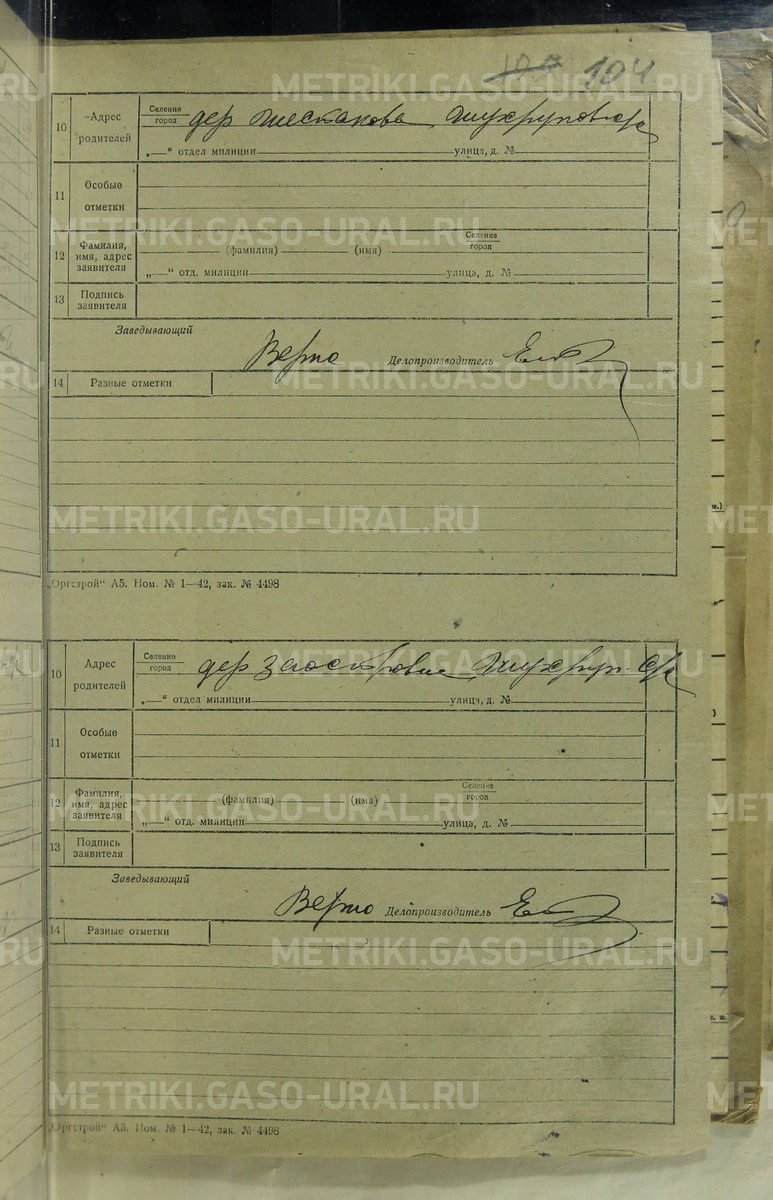 107 104
METRIKI.GASO-URAL.RU
10 Адрес родителей
Селение
город
дер
„—“ отдел милиции улица, д. №
11 Особые отметки
12 Фамилия, имя, адрес заявителя
(фамилия) (имя) Селение
город
„—“ отд. милиции улица, д. №
13 Подпись заявителя
Заведывающий
Верно Делопроизводитель
METRIKI.GASO-URAL.RU
14 Разные отметки
METRIKI.GASO-URAL.RU
„Оргстрой“ А5. Ном. № 1—42, зак. № 4498
10 Адрес родителей
Селение
город
дер Заостровка
METRIKI.GASO-URAL.RU
„—“ отдел милиции улица, д. №
11 Особые отметки
12 Фамилия, имя, адрес заявителя
(фамилия) (имя) Селение
город
METRIKI.GASO-URAL.RU
„—“ отд. милиции улица, д. №
13 Подпись заявителя
Заведывающий
Верно Делопроизводитель
14 Разные отметки
METRIKI.GASO-URAL.RU
METRIKI.GASO-URAL.RU
„Оргстрой“ А5. Ном. № 1—42, зак. № 4498